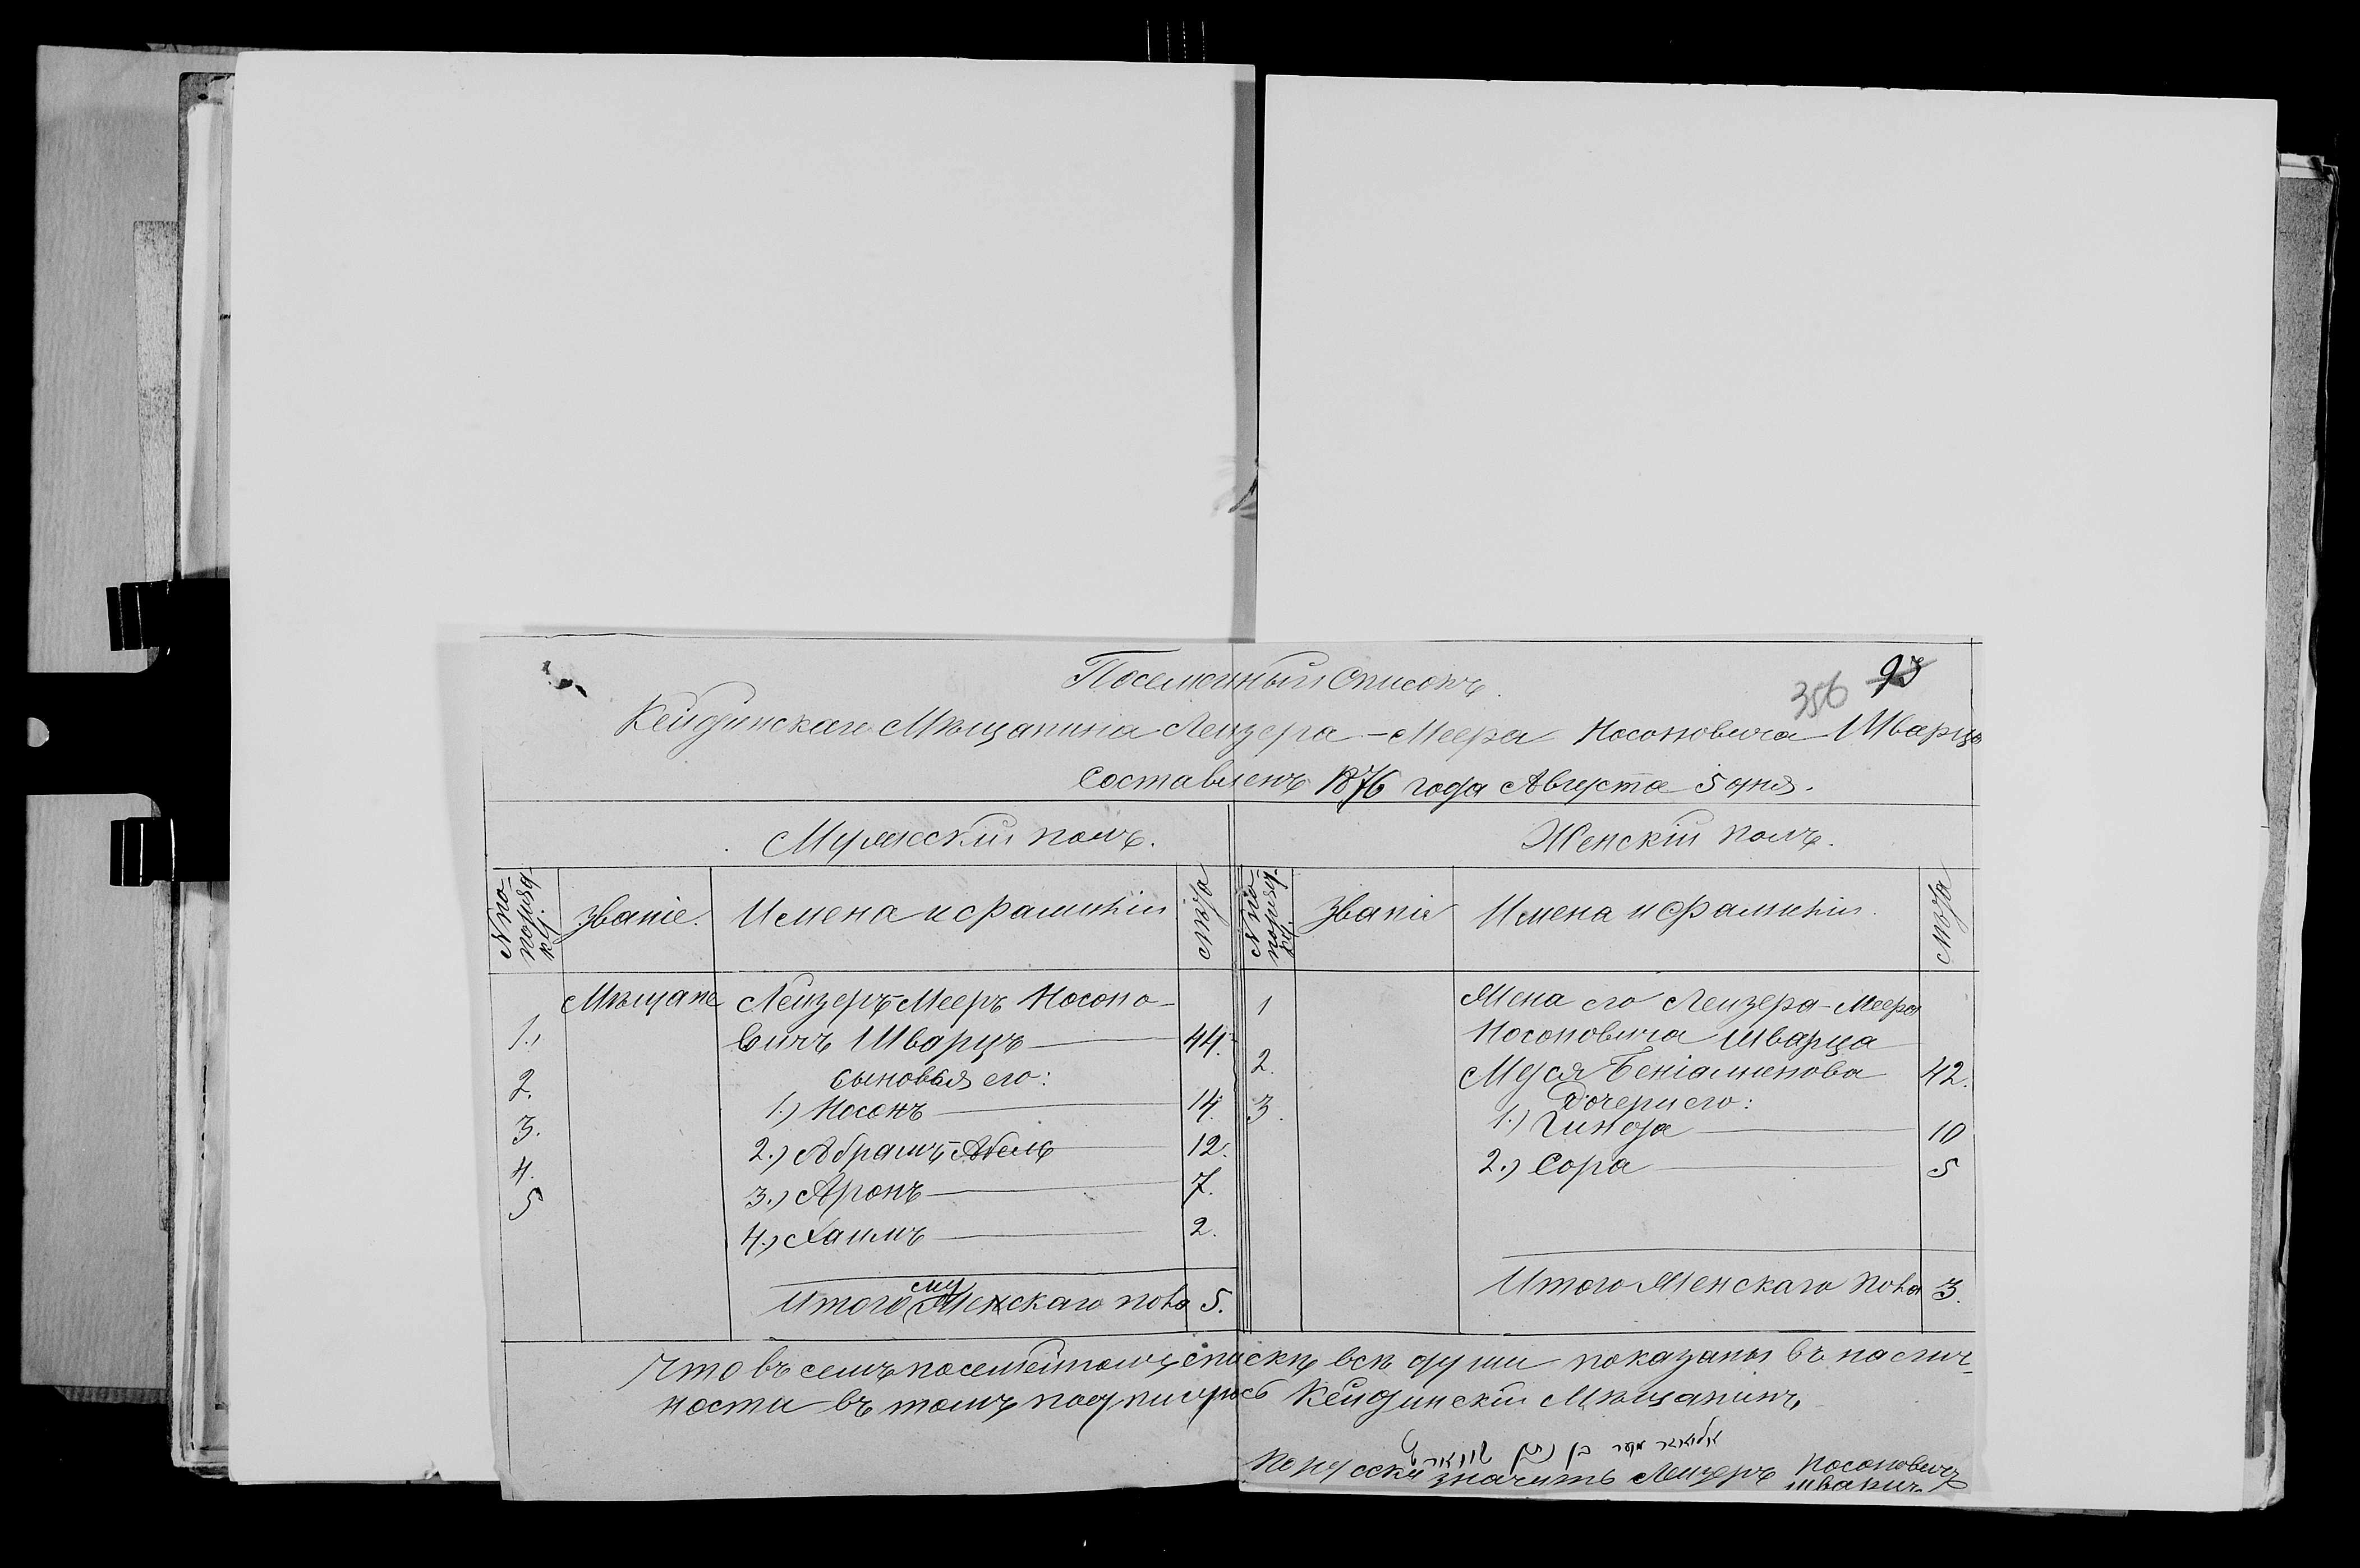 Посемейный Списокъ.
356 93
Кейданскаго Мѣщанина Лейзера-Меера Носоновича Шварца
Составленъ 1876 года Августа 5 дня.
Мужескій полъ.
№ по порядку. Званіе. Имена и фамиліи Лѣта
Мѣщане Лейзеръ-Мееръ Носоно-
1. вичъ Шварцъ 44.
сыновья его:
2. 1.) Носонъ 14.
3. 2.) Абрамъ-Абель 12.
4. 3.) Аронъ 7.
5 4.) Хаимъ 2.
Итого му Женскаго пола 5.
Женскій полъ.
№ по порядку. Званіе Имена и Фамиліи. Лѣта
1 Жена его Лейзера-Меера
Носоновича Шварца
2. Муся Беніаминова 42.
Дочери его:
3. 1.) Гинда 10
2.) Сора 5
Итого Женскаго пола 3.
Что въ семъ посемейномъ спискѣ всѣ души показаны въ налич-
ности въ томъ подпишусь Кейданскій Мѣщанинъ
אליעזר מאיר בן נתן שווארץ
По русски значитъ Лейзеръ Носоновичъ
Шварцъ